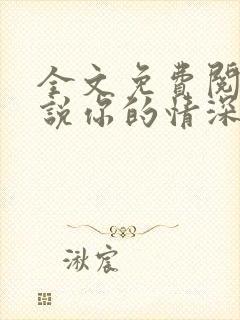 全文免費閱
說你的情深
湫宸